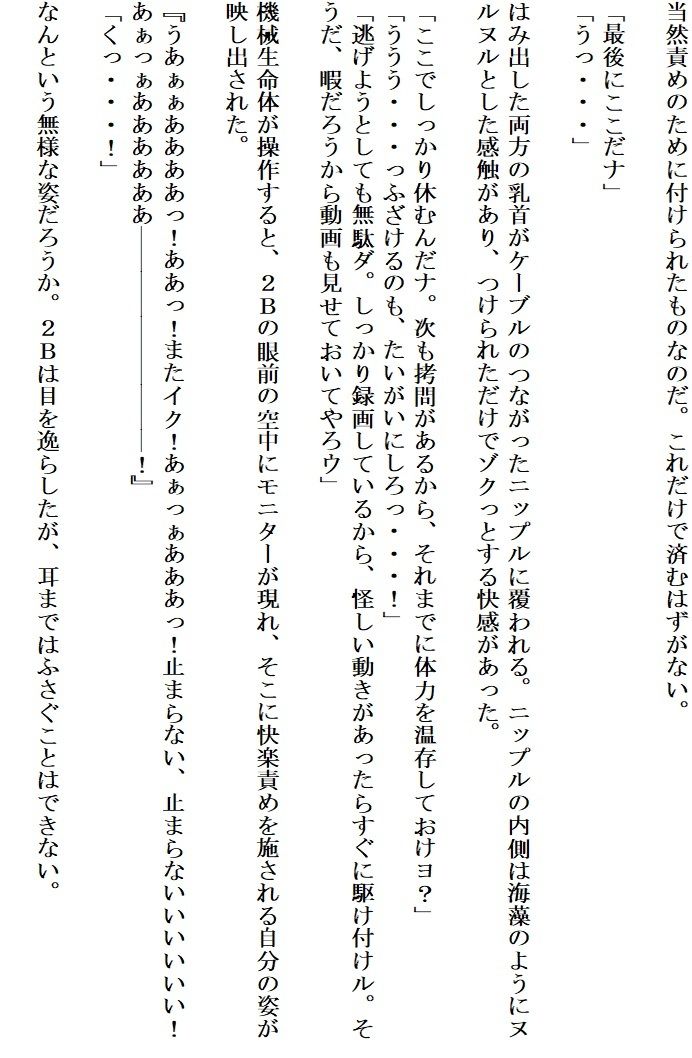 当然責めのために付けられたものなのだ。これだけで済むはずがない。
「最後にここだナ」
「うっ・・・」
はみ出した両方の乳首がケーブルのつながったニップルに覆われる。ニップルの内側は海藻のようにヌ
ルヌルとした感触があり、つけられただけでゾクっとする快感があった。
「ここでしっかり休むんだナ。次も拷問があるから、それまでに体力を温存しておけヨ？」
「ううう・・・っふざけるのも、たいがいにしろっ・・・！」
「逃げようとしても無駄ダ。しっかり録画しているから、怪しい動きがあったらすぐに駆け付けル。そ
うだ、暇だろうから動画も見せておいてやろウ」
機械生命体が操作すると、２Ｂの眼前の空中にモニターが現れ、そこに快楽責めを施される自分の姿が
映し出された。
『うあぁぁああああっ！ああっ！またイク！あぁっぁあああっ！止まらない、止まらないいいいいい！
あぁっぁああああああ――――――――！』
「くっ・・・！」
なんという無様な姿だろうか。２Ｂは目を逸らしたが、耳まではふさぐことはできない。